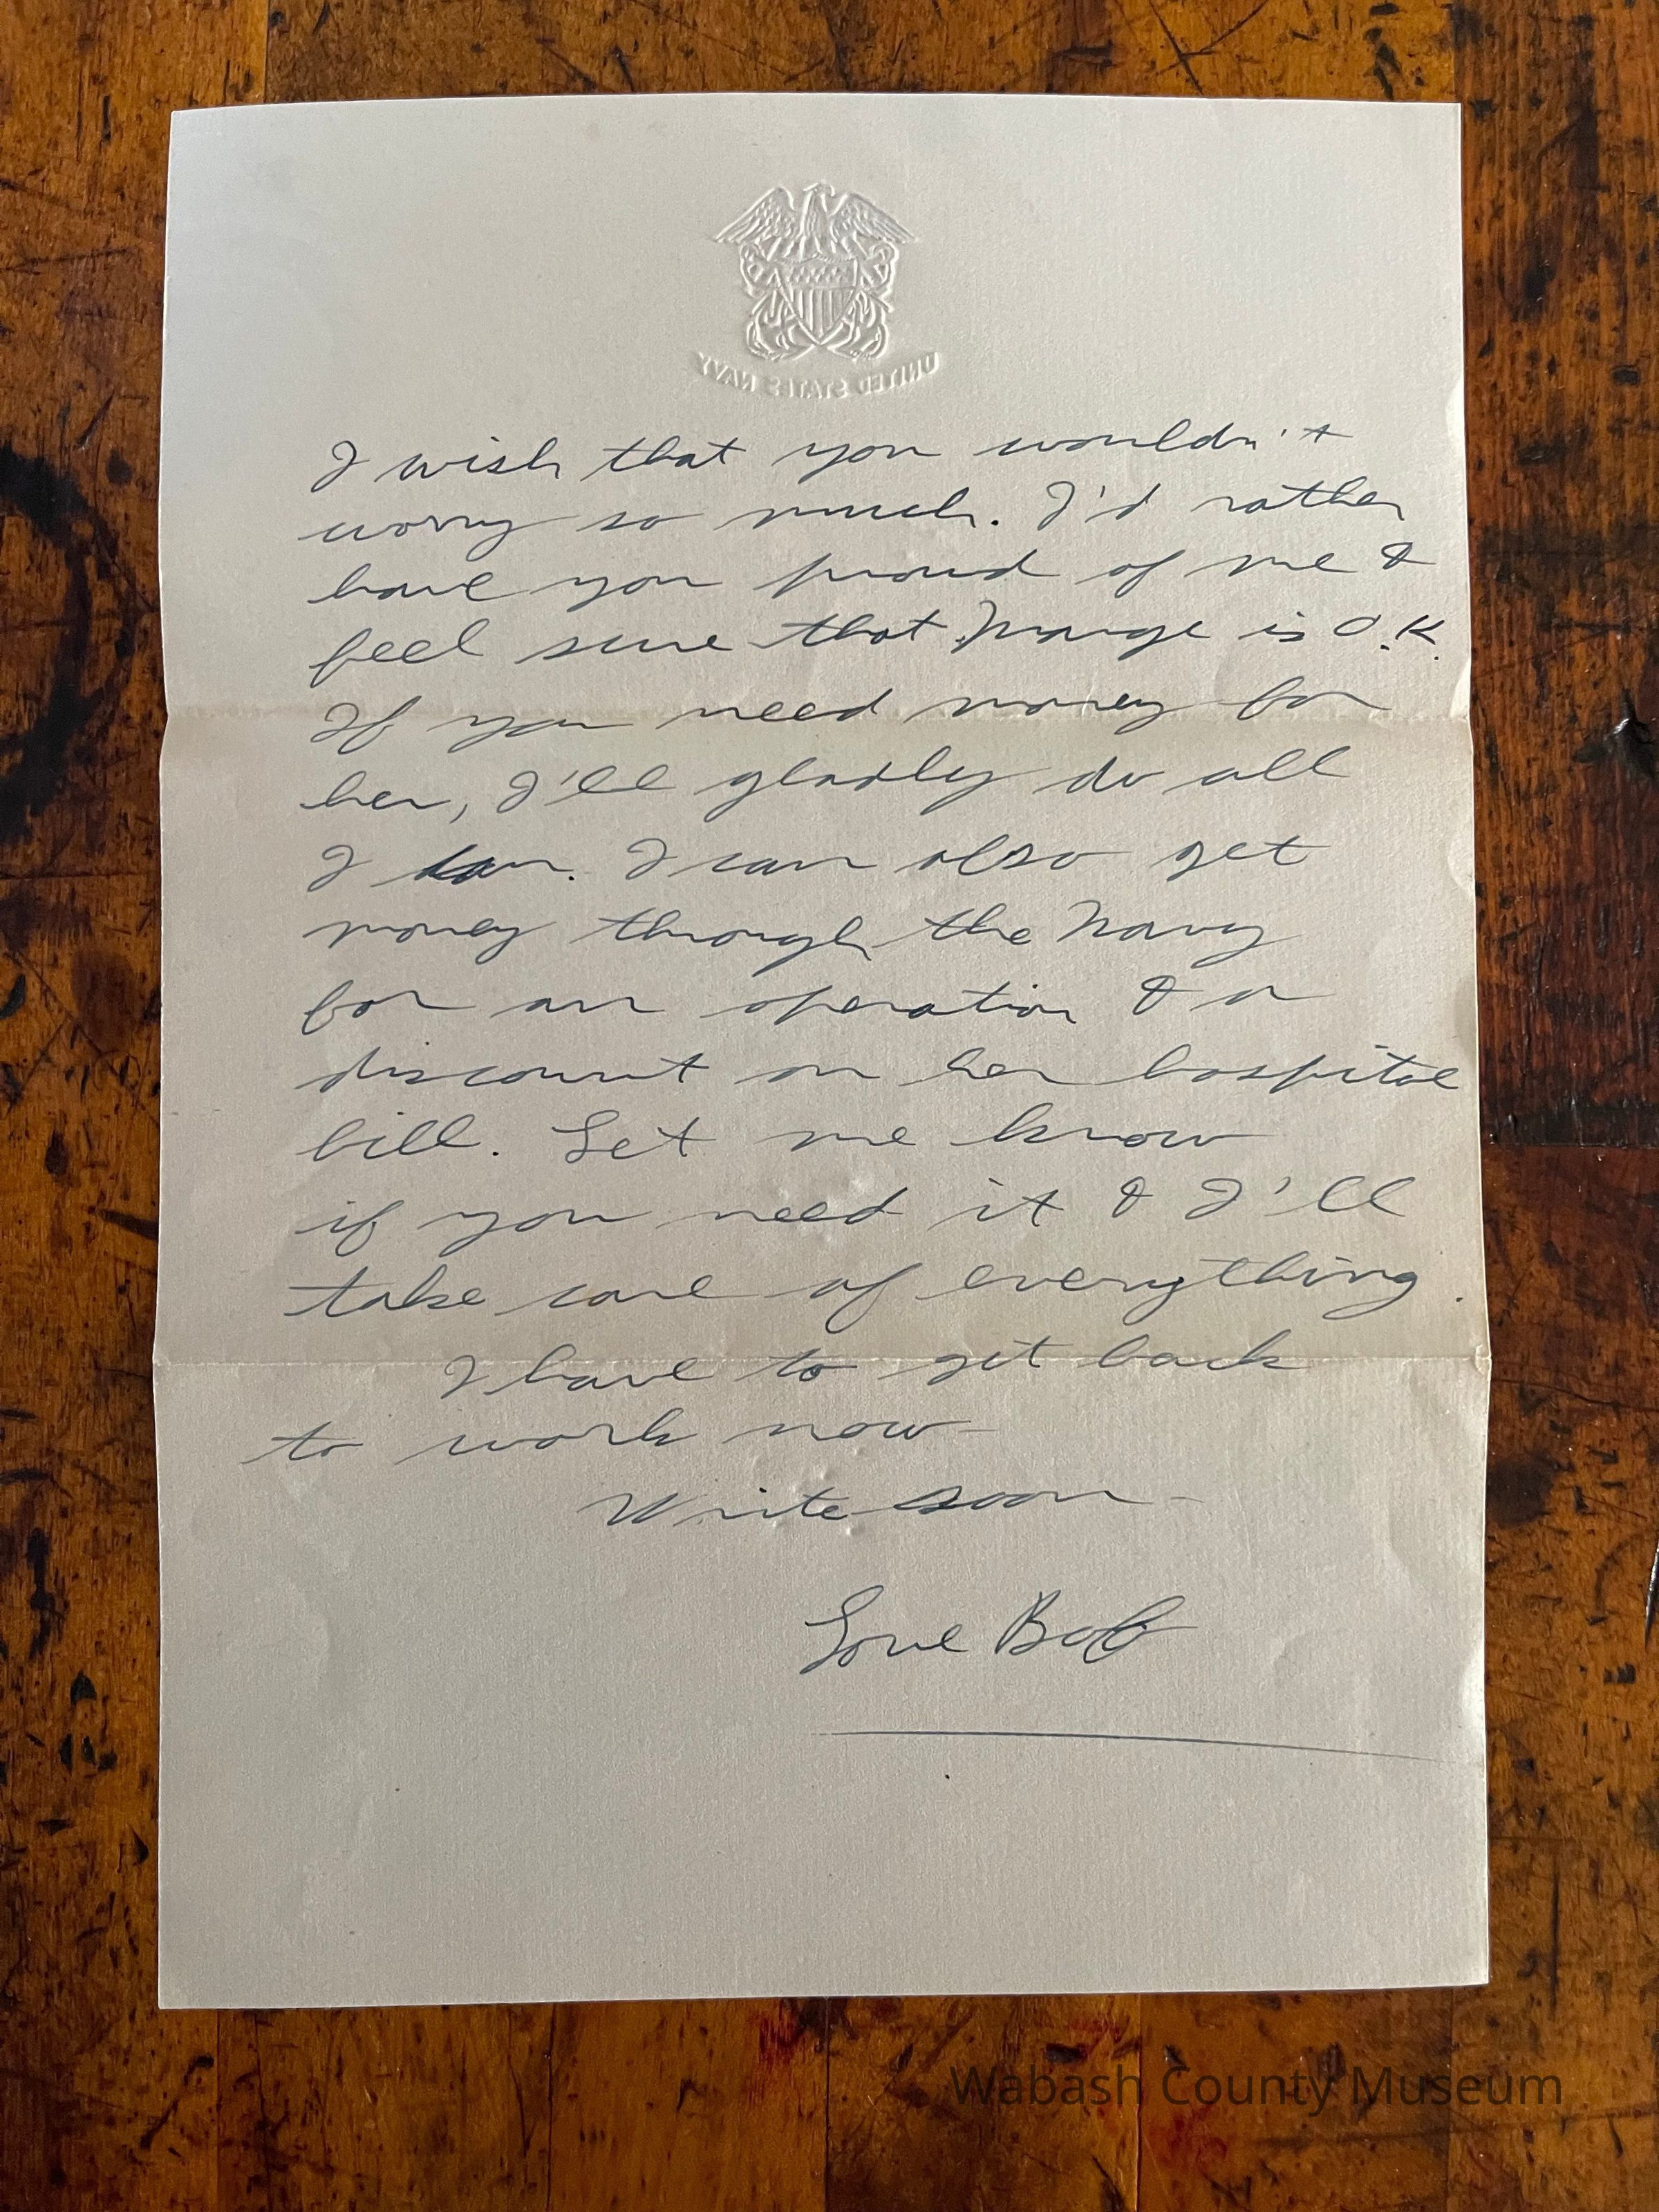 UNITED STATES NAVY
I wish that you wouldn't
worry so much. I'd rather
have you proud of me &
feel sure that Marge is O.K.
If you need money for
her, I'll gladly do all
I can. I can also get
money through the Navy
for an operation & a
discount on her hospital
bill. Let me know
if you need it & I'll
take care of everything.
I have to get back
to work now-
Write soon-
Love Bob
Wabash County Museum